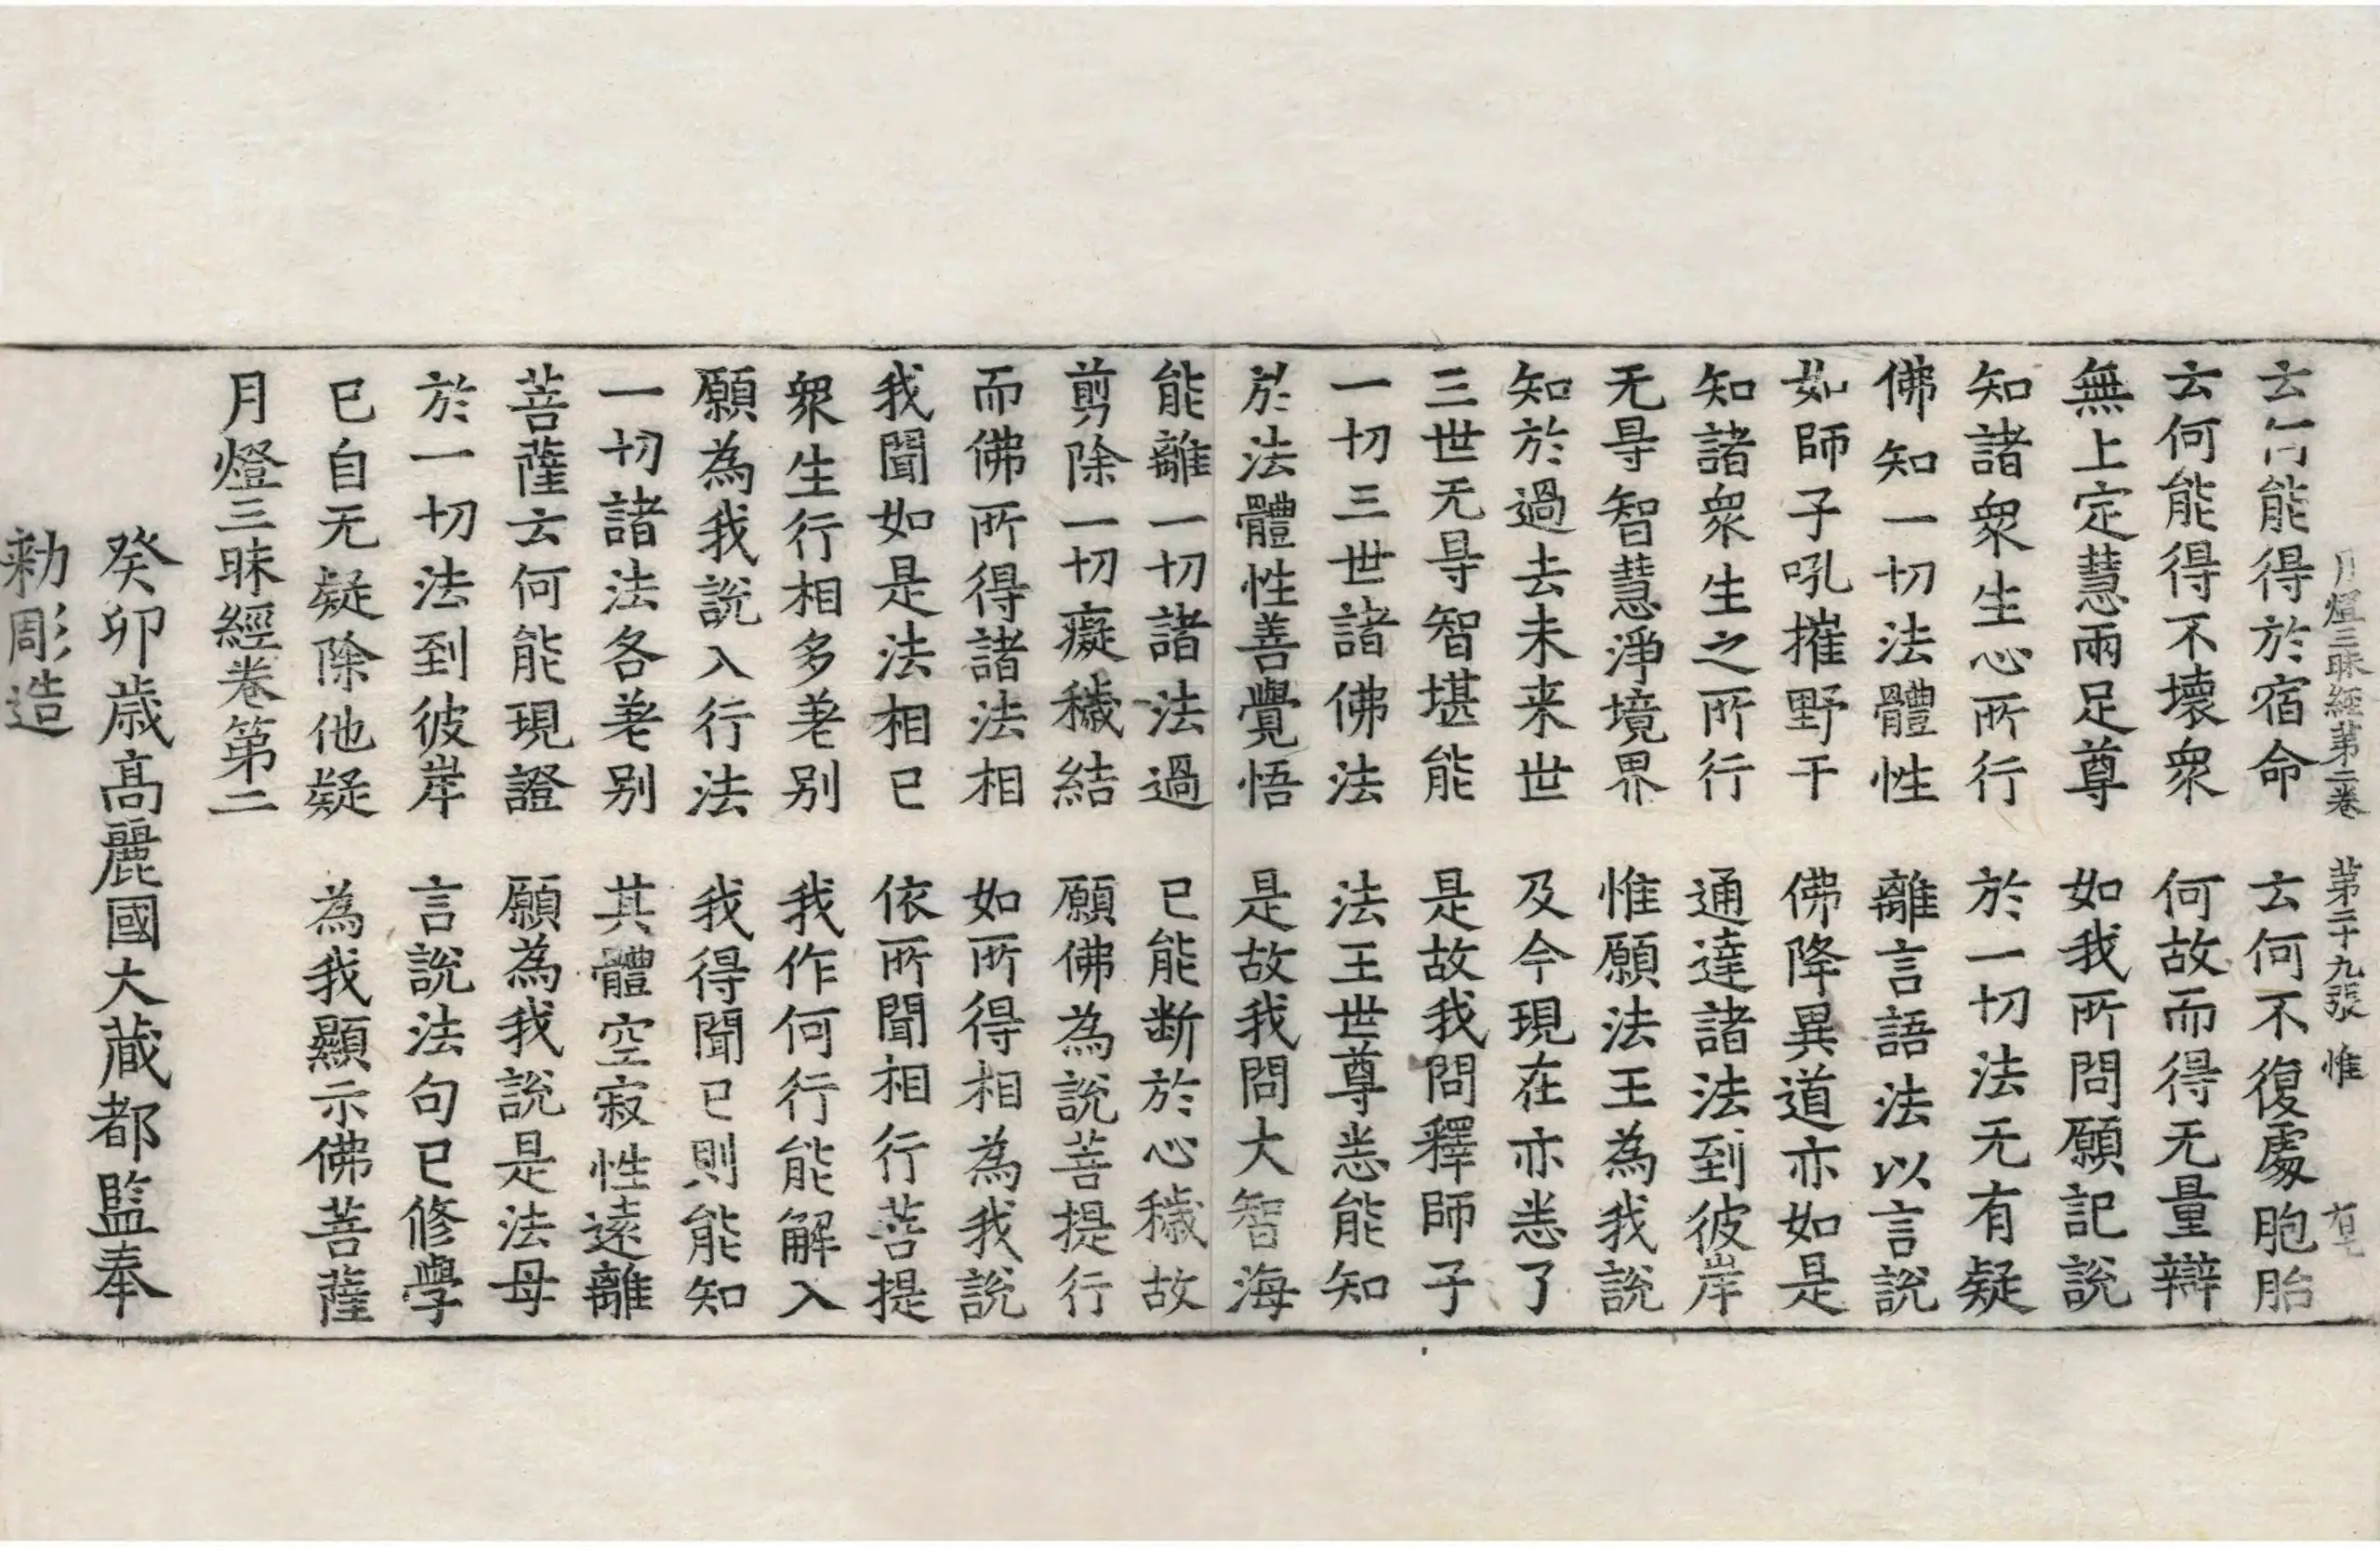 月燈三昧經第二卷 第二十九張 惟
云何能得於宿命 云何不復處胞胎
云何能得不壞衆 何故而得无量辯
無上定慧兩足尊 如我所問願記說
知諸衆生心所行 於一切法无有疑
佛知一切法體性 離言語法以言說
如師子吼摧野干 佛降異道亦如是
知諸衆生之所行 通達諸法到彼岸
无㝵智慧淨境界 惟願法王為我說
知於過去未来世 及今現在亦悉了
三世无㝵智堪能 是故我問釋師子
一切三世諸佛法 法王世尊悉能知
於法體性善覺悟 是故我問大智海
能離一切諸法過 已能断於心穢故
剪除一切癡穢結 願佛為說菩提行
而佛所得諸法相 如所得相為我說
我聞如是法相已 依所聞相行菩提
衆生行相多差別 我作何行能解入
願為我說入行法 我得聞已則能知
一切諸法各差別 其體空寂性遠離
菩薩云何能現證 願為我說是法母
於一切法到彼岸 言說法句已修學
已自无疑除他疑 為我顯示佛菩薩
月燈三昧經卷第二
癸卯歳高麗國大蔵都監奉
勑彫造